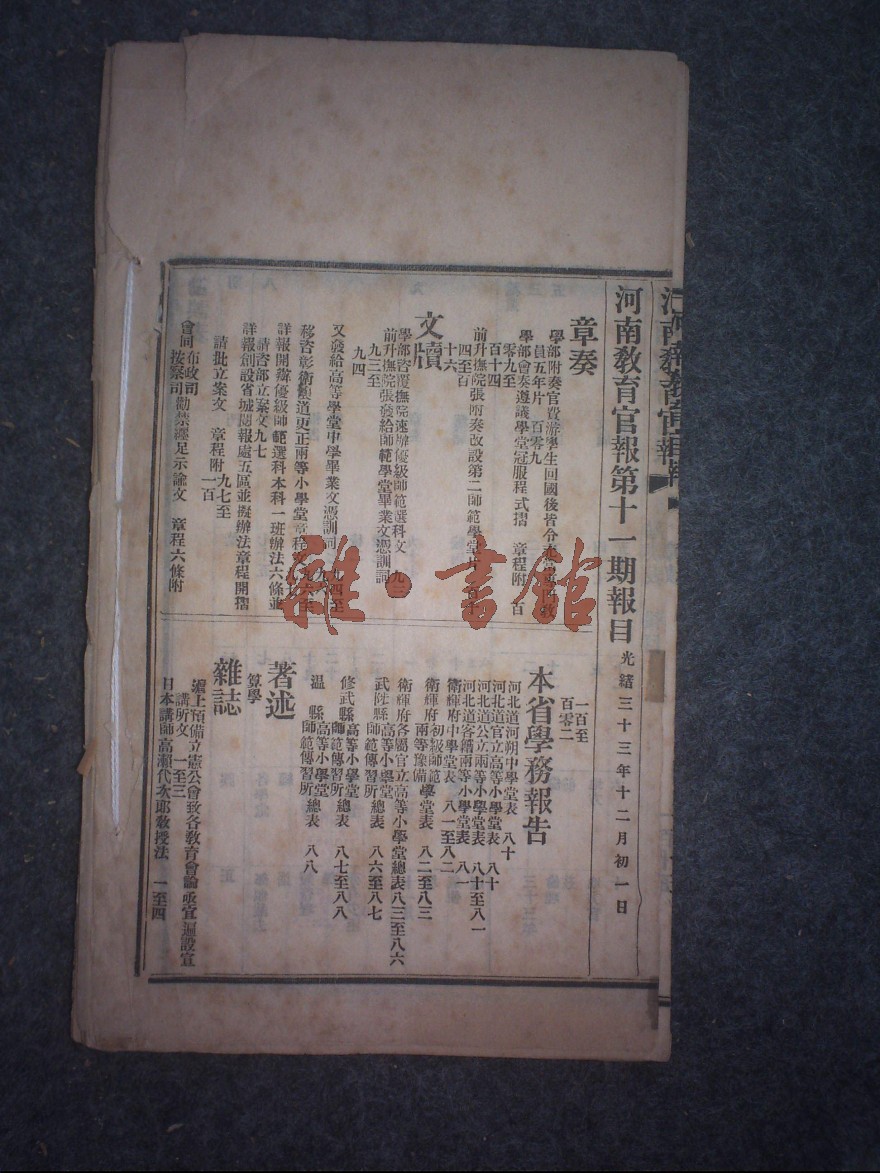 河南教育官報
河南教育官報第十一期報目 光緒三十三年十二月初一日
章奏
學部附奏官費游學生回國後皆令充當專門教
員五年片 百零九
學部會奏遵議學堂冠服程式摺 章程附 百
零九至
百十四
前升撫院張附奏改設第二師範學堂片 百十
四至百
十六
文牘
學部咨覆撫院速辦優級師範選科文 九三
前升撫院張發給師範學堂畢業文憑訓詞
九三至
九四
又發給高等學堂中學畢業文憑訓詞 九四至
移咨彰衛懷道更正兩等小學堂章程文 九六至
詳報開辦優級師範選科本科一班辦法六條並
請咨部立案文 九七
詳報創設省城閱報處五區並擬辦法章程開摺
請批立案文 章程附 九七至
一百
會同布政司
按察司勸禁纏足示諭文 章程六條附
一百至
百零二
本省學務報告
河北道河朔中學堂表 八十
河北道官立高等小學堂表 八十
河北道公立兩等小學堂表 八十至八一
河北道客籍兩等小學堂表 八一
衛輝府中學堂表 八一至八二
衛輝府初級師範
兩等豫備學堂表 八二至八三
衛輝府各屬官立高等小學堂總表 八三至八六
武陟縣高等小學堂
師範傳習所總表 八六至八七
修武縣高等小學堂
師範傳習所總表 八七至八八
温縣高等小學堂
師範傳習所總表 八八
著述
算學
雜誌
滬上預備立憲公會致各教育會論亟宜遍設宣
講所文 一至三
日本講師高瀨代次郎教授法 一至四
雜·書館